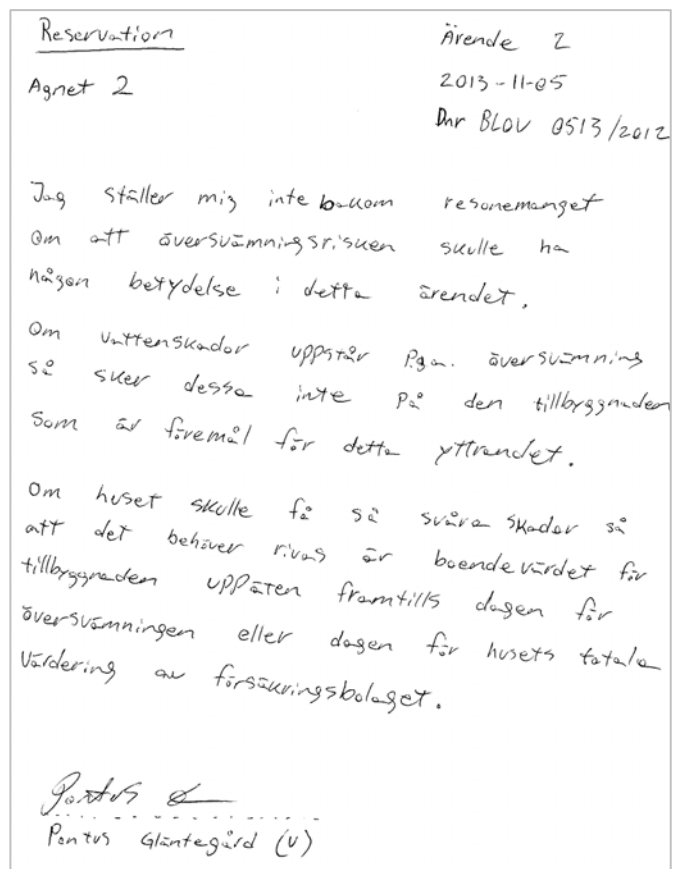 Reservation
Ärende 2
Agnet 2
2013-11-05
Dnr BLOV 0513/2012
Jag ställer mig inte bakom resonemanget
om att översvämningsrisken skulle ha
någon betydelse i detta ärendet.
Om vattenskador uppstår p.g.a. översvämning
så sker dessa inte på den tillbyggnaden
som är föremål för detta yttrandet.
Om huset skulle få så svåra skador så
att det behöver rivas är boendevärdet för
tillbyggnaden uppäten framtills dagen för
översvämningen eller dagen för husets totala
värdering av försäkringsbolaget.
Pontus
Pontus Gläntegård (V)